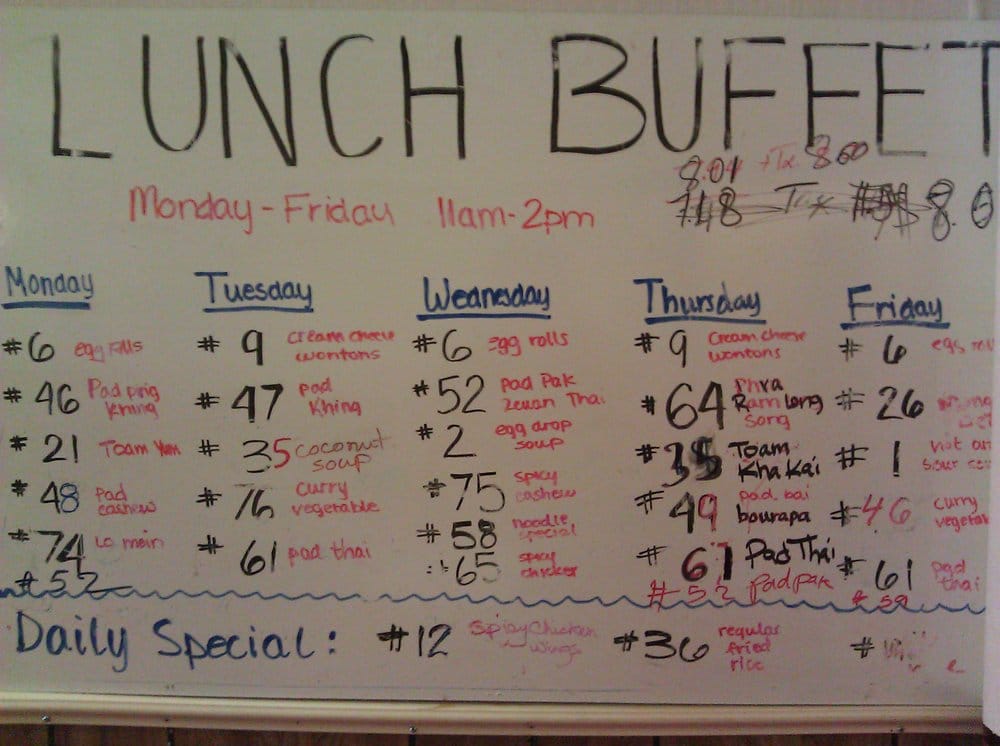 LUNCH BUFFET
8.01 +Tx. 8.60
Monday-Friday 11am-2pm
7.48 Tx 8.0
Monday
#6 egg rolls
#46 Pad prig
khing
#21 Toam Yum
#48 pad
cashew
#74 Lo mein
#52
Tuesday
#9 cream cheese
wontons
#47 pad
Khing
#35 coconut
soup
#76 curry
vegetable
#61 pad thai
Wednesday
#6 egg rolls
#52 Pad Pak
Thai
#2 egg drop
soup
#75 spicy
cashew
#58 noodle
special
#65 spicy
chicken
Thursday
#9 Cream cheese
wontons
#64 Phra
Ram Long
Song
#35 Toam
Kha Kai
#49 pad bai
bourapa
#61 Pad Thai
#52 pad pak
Friday
#6 egg
#26
#1 hot an
sour
#46 curry
vegetab
#61 pad
thai
#59
Daily Special: #12 Spicy Chicken
wings
#36 regular
fried
rice
#